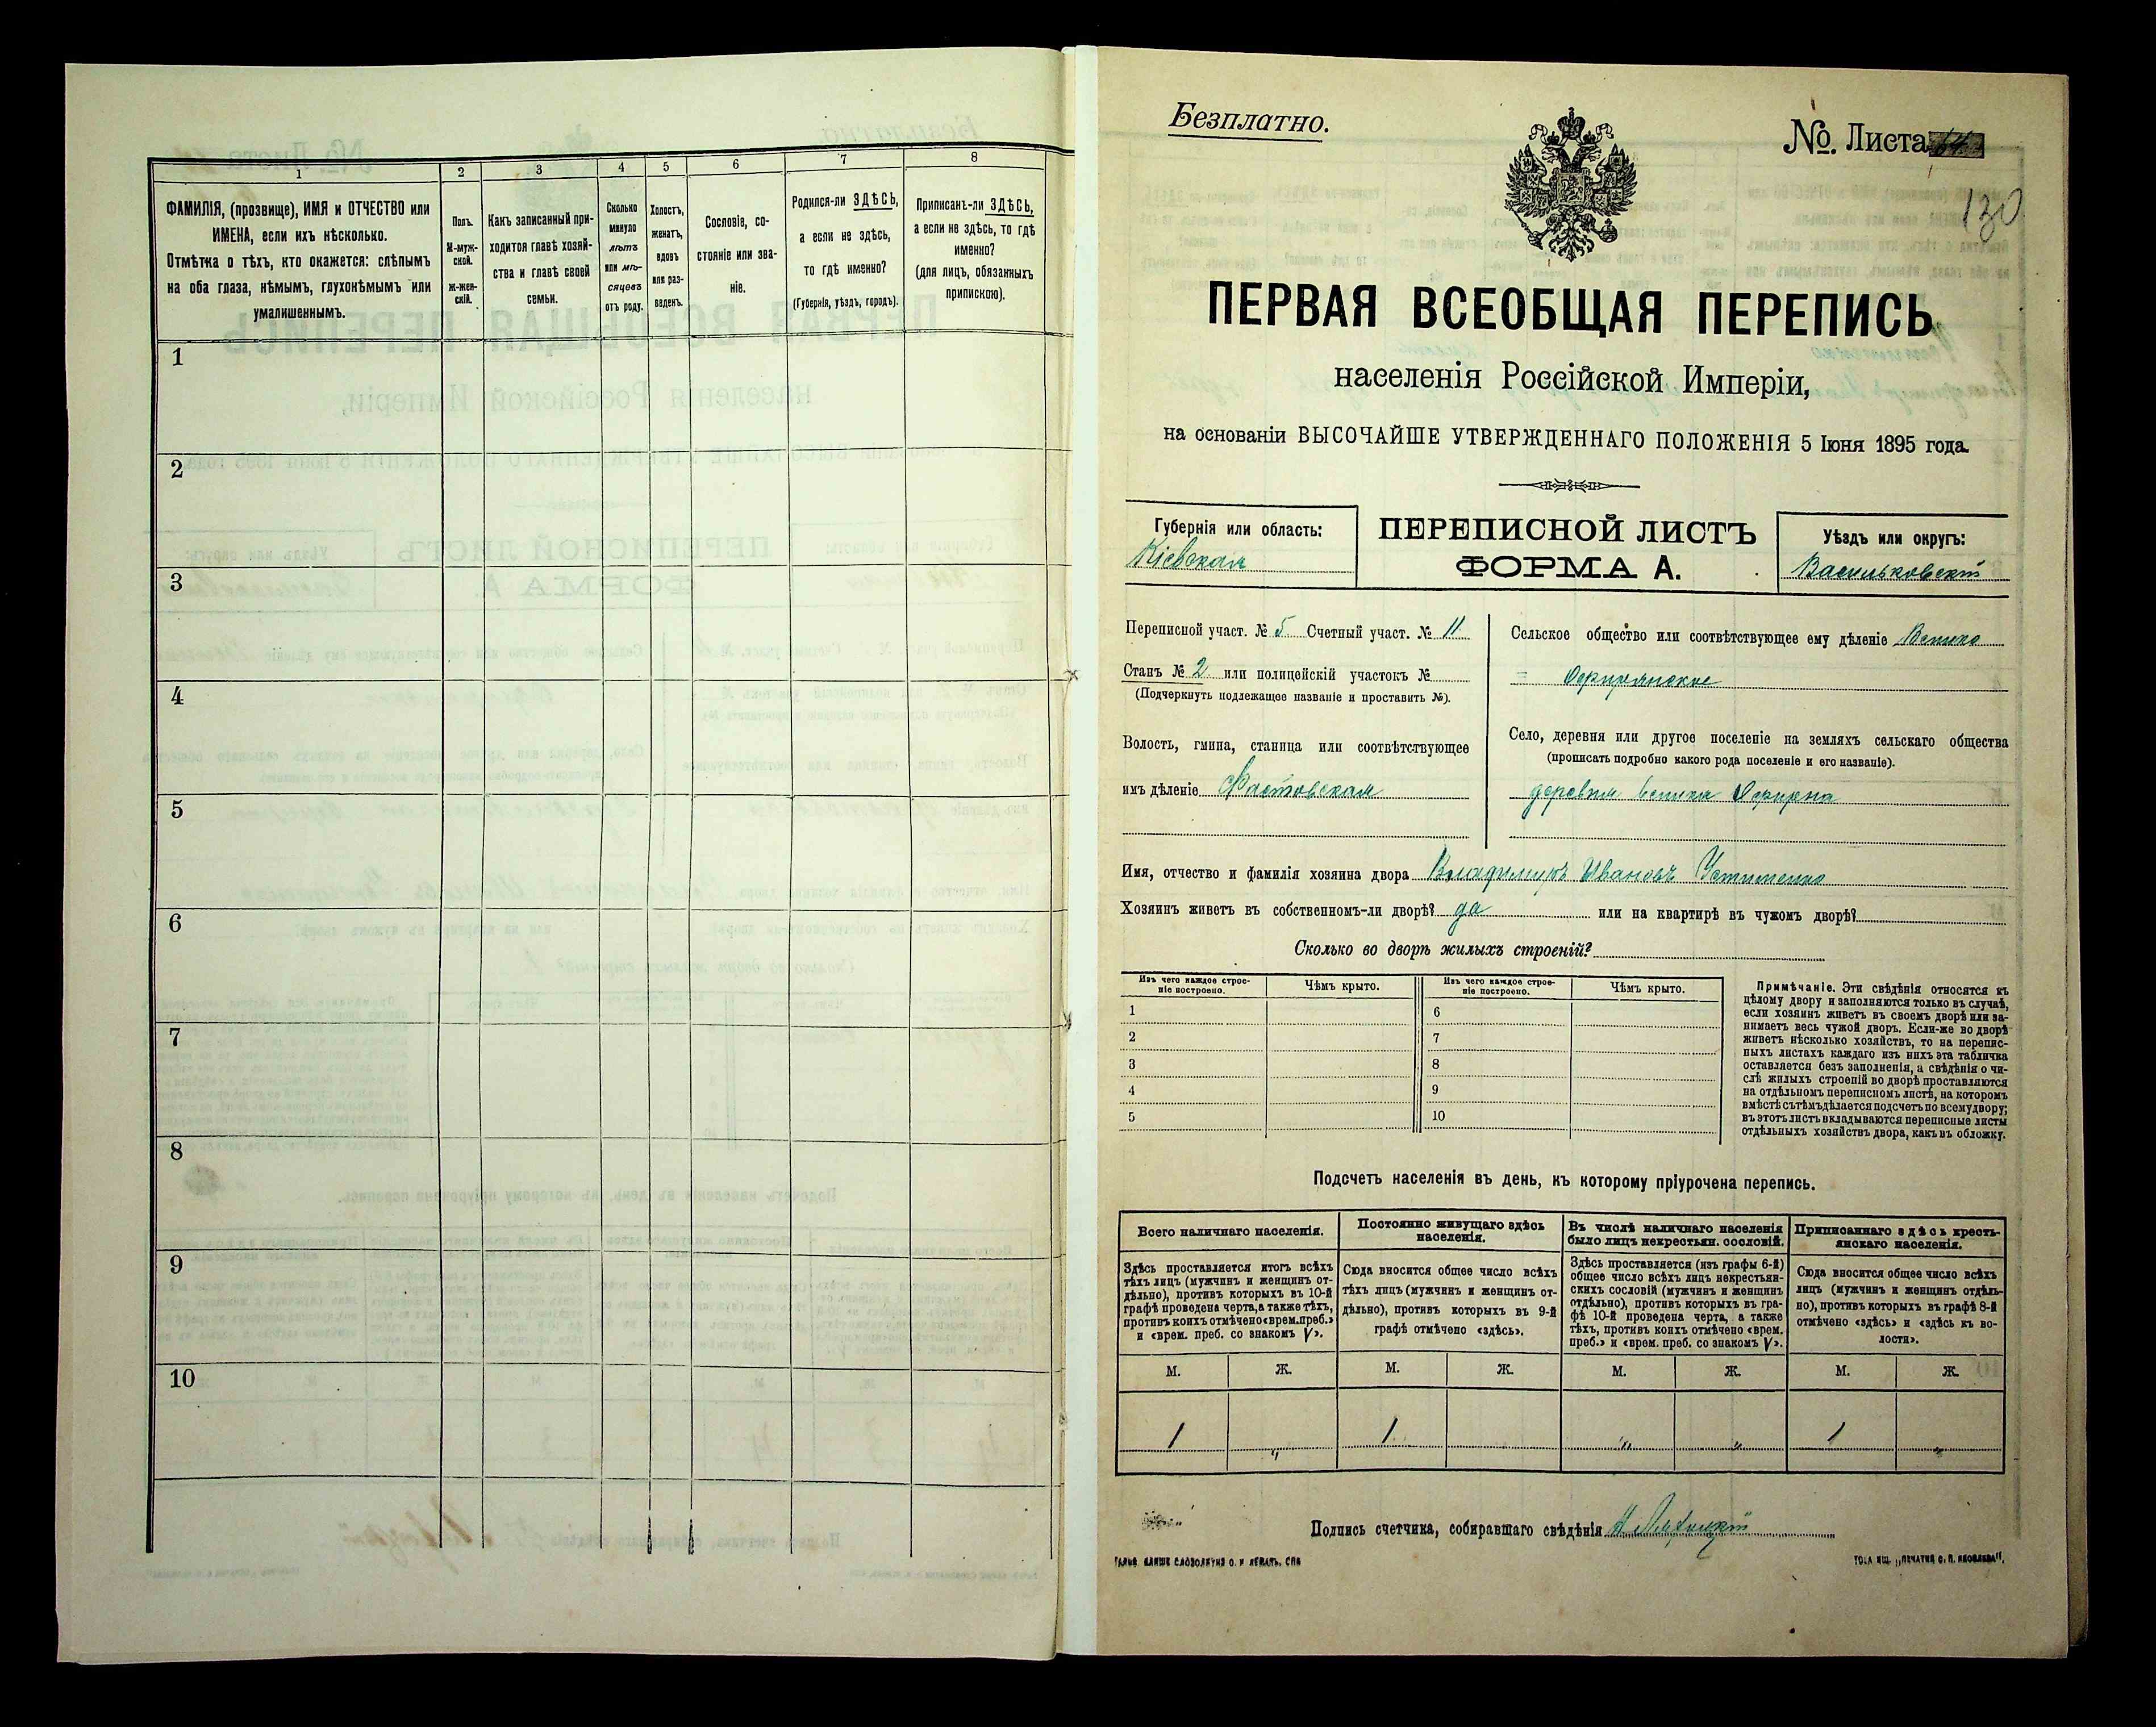 1 2 3 4 5 6 7 8
ФАМИЛІЯ, (прозвище), ИМЯ и ОТЧЕСТВО или
ИМЕНА, если ихъ нѣсколько.
Отмѣтка о тѣхъ, кто окажется: слѣпымъ
на оба глаза, нѣмымъ, глухонѣмымъ или
умалишеннымъ.
Полъ.
М-муж-
ской.
Ж-жен-
скій.
Какъ записанный при-
ходится главѣ хозяй-
ства и главѣ своей
семьи.
Сколько
минуло
лѣтъ
или мѣ-
сяцевъ
отъ роду.
Холостъ,
женатъ,
вдовъ
или раз-
веденъ.
Сословіе, со-
стояніе или зва-
ніе.
Родился-ли ЗДѢСЬ,
а если не здѣсь,
то гдѣ именно?
(Губернія, уѣздъ, городъ).
Приписанъ-ли ЗДѢСЬ,
а если не здѣсь, то гдѣ
именно?
(для лицъ, обязанныхъ
припискою).
1
2
3
4
5
6
7
8
9
10
Безплатно.
№. Листа
130
ПЕРВАЯ ВСЕОБЩАЯ ПЕРЕПИСЬ
населенія Россійской Имперіи,
на основаніи ВЫСОЧАЙШЕ УТВЕРЖДЕННАГО ПОЛОЖЕНІЯ 5 Іюня 1895 года.
Губернія или область:
Кіевская
ПЕРЕПИСНОЙ ЛИСТЪ
ФОРМА А.
Уѣздъ или округъ:
Васильковскій
Переписной участ. № 5 Счетный участ. № 11
Станъ № 2 или полицейскій участокъ №
(Подчеркнуть подлежащее названіе и проставить №).
Волость, гмина, станица или соотвѣтствующее
имъ дѣленіе Фастовская
Сельское общество или соотвѣтствующее ему дѣленіе Велико
= Офирнянское
Село, деревня или другое поселеніе на земляхъ сельскаго общества
(прописать подробно какого рода поселеніе и его названіе).
деревня велика Офирна
Имя, отчество и фамилія хозяина двора Владимиръ Ивановъ Устименко
Хозяинъ живетъ въ собственномъ-ли дворѣ? да или на квартирѣ въ чужомъ дворѣ?
Сколько во дворѣ жилыхъ строеній?
Изъ чего каждое строе-
ніе построено.
Чѣмъ крыто.
Изъ чего каждое строе-
ніе построено.
Чѣмъ крыто.
1 6
2 7
3 8
4 9
5 10
Примѣчаніе. Эти свѣдѣнія относятся къ
цѣлому двору и заполняются только въ случаѣ,
если хозяинъ живетъ въ своемъ дворѣ или за-
нимаетъ весь чужой дворъ. Если-же во дворѣ
живетъ нѣсколько хозяйствъ, то на перепис-
ныхъ листахъ каждаго изъ нихъ эта табличка
оставляется безъ заполненія, а свѣдѣнія о чи-
слѣ жилыхъ строеній во дворѣ проставляются
на отдѣльномъ переписномъ листѣ, на которомъ
вмѣстѣ съ тѣмъ дѣлается подсчетъ по всему двору;
въ этотъ листъ вкладываются переписные листы
отдѣльныхъ хозяйствъ двора, какъ въ обложку.
Подсчетъ населенія въ день, къ которому пріурочена перепись.
Всего наличнаго населенія.
Здѣсь проставляется итогъ всѣхъ
тѣхъ лицъ (мужчинъ и женщинъ от-
дѣльно), противъ которыхъ въ 10-й
графѣ проведена черта, а также тѣхъ,
противъ коихъ отмѣчено «врем. преб.»
и «врем. преб. со знакомъ V».
Постоянно живущаго здѣсь
населенія.
Сюда вносится общее число всѣхъ
тѣхъ лицъ (мужчинъ и женщинъ от-
дѣльно), противъ которыхъ въ 9-й
графѣ отмѣчено «здѣсь».
Въ числѣ наличнаго населенія
было лицъ некрестьян. сословій.
Здѣсь проставляется (изъ графы 6-й)
общее число всѣхъ лицъ некрестьян-
скихъ сословій (мужчинъ и женщинъ
отдѣльно), противъ которыхъ въ гра-
фѣ 10-й проведена черта, а также
тѣхъ, противъ коихъ отмѣчено «врем.
преб.» и «врем. преб. со знакомъ V».
Приписаннаго здѣсь кресть-
янскаго населенія.
Сюда вносится общее число всѣхъ
лицъ (мужчинъ и женщинъ отдѣль-
но), противъ которыхъ въ графѣ 8-й
отмѣчено «здѣсь» и «здѣсь къ во-
лости».
М. Ж. М. Ж. М. Ж. М. Ж.
1 „ 1 „ „ 1 „
Подпись счетчика, собиравшаго свѣдѣнія